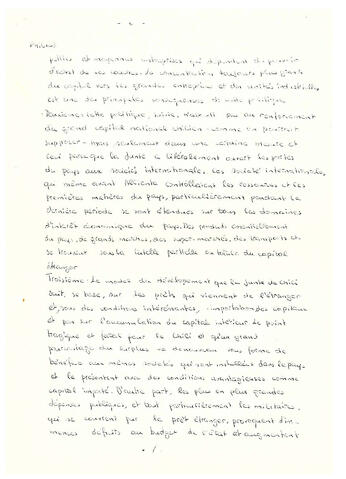 - 2 -
petites et moyennes entreprises qui dependent du pouvoir
d'achat de ces couches. La concentration toujours plus grande
du capital vers les grandes entreprises et les unités industrielles
est une des principales consequences de cette politique.
Deuxieme: cette politique, suivie, n'abouti pas au renforcement
du grand capital national chilien - comme on pourrait
supposer - mais seulement dans une certaine mesure et
ceci parce que la Junte a litéralement ouvert les portes
du pays aux sociétés internationales. Les sociétés internationales,
qui même avant Allende controllaient les ressources et les
premières matières du pays, particulièrement pendant la
dernière période se sont étendues sur tous les domaines
d'interêt économique du pays. Les produits essentiellement
du pays, de grands marchés, des super-marchés, des transports et
se trouvent sous la tutelle partielle ou totale du capital
étranger
Troisième: Le modèle du développement que la Junte de Chili
suit, se base, sur les prêts qui viennent de l'étranger
et, sous des conditions interessantes, importation des capitaux
et pas sur l'accumulation du capital intérieur. Le point
tragique et fatal pour le Chili est qu'un grand
pourcentage du surplus va denouveau sous forme de
bénéfice aux mêmes sociétés qui sont installées dans le pays
et le présentent avec des conditions avantageuses comme
capital importé. D'autre part, les plus en plus grandes
dépenses publiques, et tout particulièrement les militaires,
qui se couvrent par le prêt étranger, provoquent d'im-
menses déficits au budget de l'état et augmentent